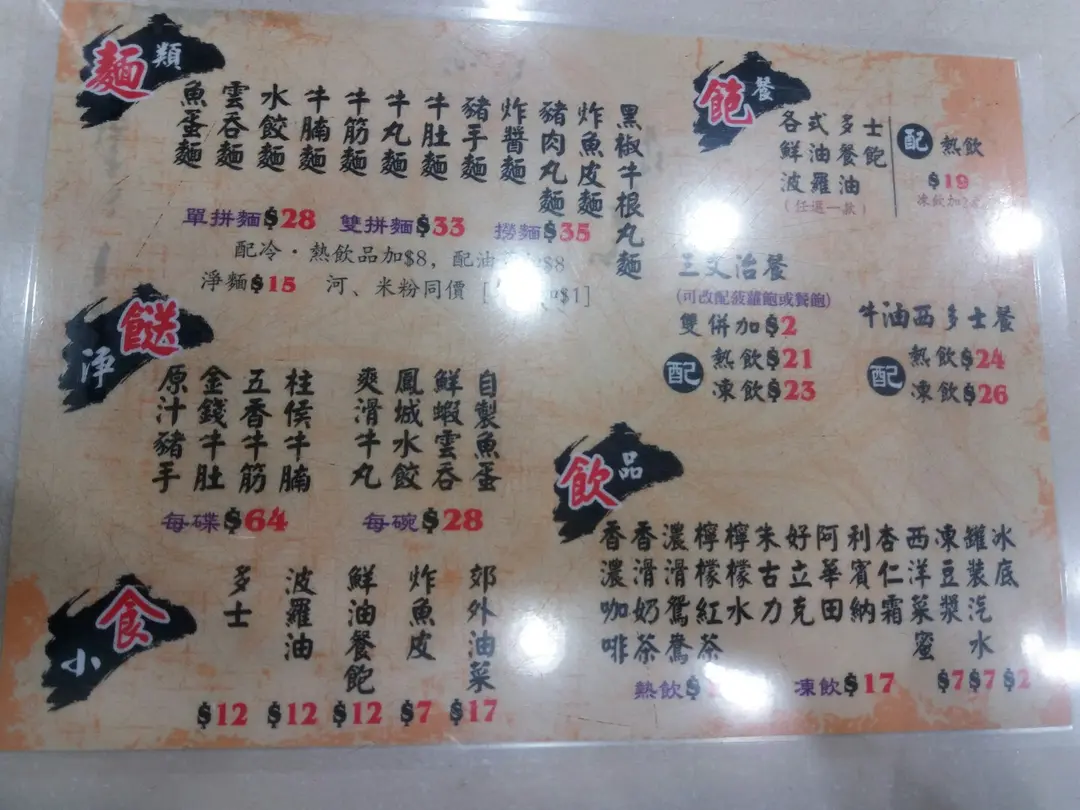 麵類
魚蛋麵
雲吞麵
水餃麵
牛腩麵
牛筋麵
牛丸麵
牛肚麵
豬手麵
炸醬麵
豬肉丸麵
炸魚皮麵
黑椒牛根丸麵
單拼麵$28 雙拼麵$33 撈麵$35
配冷·熱飲品加$8，配油 $8
淨麵$15 河、米粉同價 [ $1]
飽餐
各式多士
鮮油餐飽
波羅油
(任選一款)
配 熱飲
$19
凍飲加
三文治餐
(可改配菠蘿飽或餐飽)
雙併加$2
配 熱飲$21
凍飲$23
牛油西多士餐
配 熱飲$24
凍飲$26
淨餸
原汁豬手
金錢牛肚
五香牛筋
柱侯牛腩
每碟$64
爽滑牛丸
鳳城水餃
鮮蝦雲吞
自製魚蛋
每碗$28
小食
多士
波羅油
鮮油餐飽
炸魚皮
郊外油菜
$12 $12 $12 $7 $17
飲品
香濃咖啡
香滑奶茶
濃滑鴛鴦
檸檬紅茶
檸檬水
朱古力
好立克
阿華田
利賓納
杏仁霜
西洋菜蜜
凍豆漿
罐裝汽水
冰底
熱飲$ 凍飲$17 $7 $7 $2